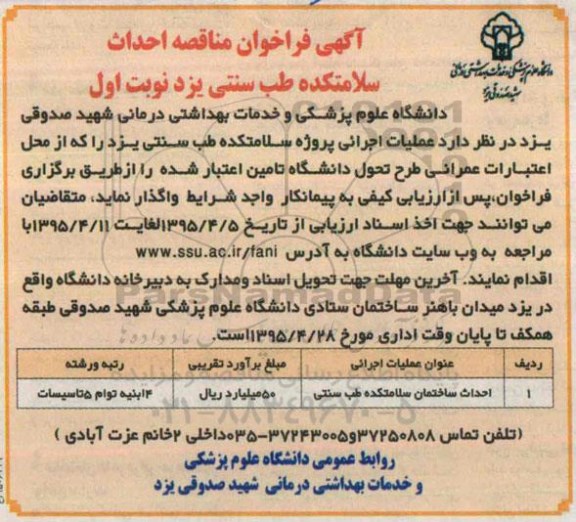 آگهی فراخوان مناقصه احداث
سلامتکده طب سنتی یزد نوبت اول
دانشگاه علوم پزشکی و خدمات بهداشتی درمانی شهید صدوقی
یزد در نظر دارد عملیات اجرائی پروژه سلامتکده طب سنتی یزد را که از محل
اعتبارات عمرانی طرح تحول دانشگاه تامین اعتبار شده را ازطریق برگزاری
فراخوان،پس ازارزیابی کیفی به پیمانکار واجد شرایط واگذار نماید، متقاضیان
می توانند جهت اخذ اسناد ارزیابی از تاریخ ۱۳۹۵/۴/۵لغایت ۱۳۹۵/۴/۱۱با
مراجعه به وب سایت دانشگاه به آدرس www.ssu.ac.ir/fani
اقدام نمایند. آخرین مهلت جهت تحویل اسناد ومدارک به دبیرخانه دانشگاه واقع
در یزد میدان باهنر ساختمان ستادی دانشگاه علوم پزشکی شهید صدوقی طبقه
همکف تا پایان وقت اداری مورخ ۱۳۹۵/۴/۲۸است.
ردیف عنوان عملیات اجرائی مبلغ برآورد تقریبی رتبه ورشته
۱ احداث ساختمان سلامتکده طب سنتی ۵۰میلیارد ریال ۴ابنیه توام ۵تاسیسات
(تلفن تماس ۳۷۲۵۰۸۰۸و۳۷۲۴۳۰۰۵-۰۳۵داخلی ۲خانم عزت آبادی )
روابط عمومی دانشگاه علوم پزشکی
و خدمات بهداشتی درمانی شهید صدوقی یزد
ParsNamadData
۰۲۱-۸۸۳۴۹۶۷۰-۵